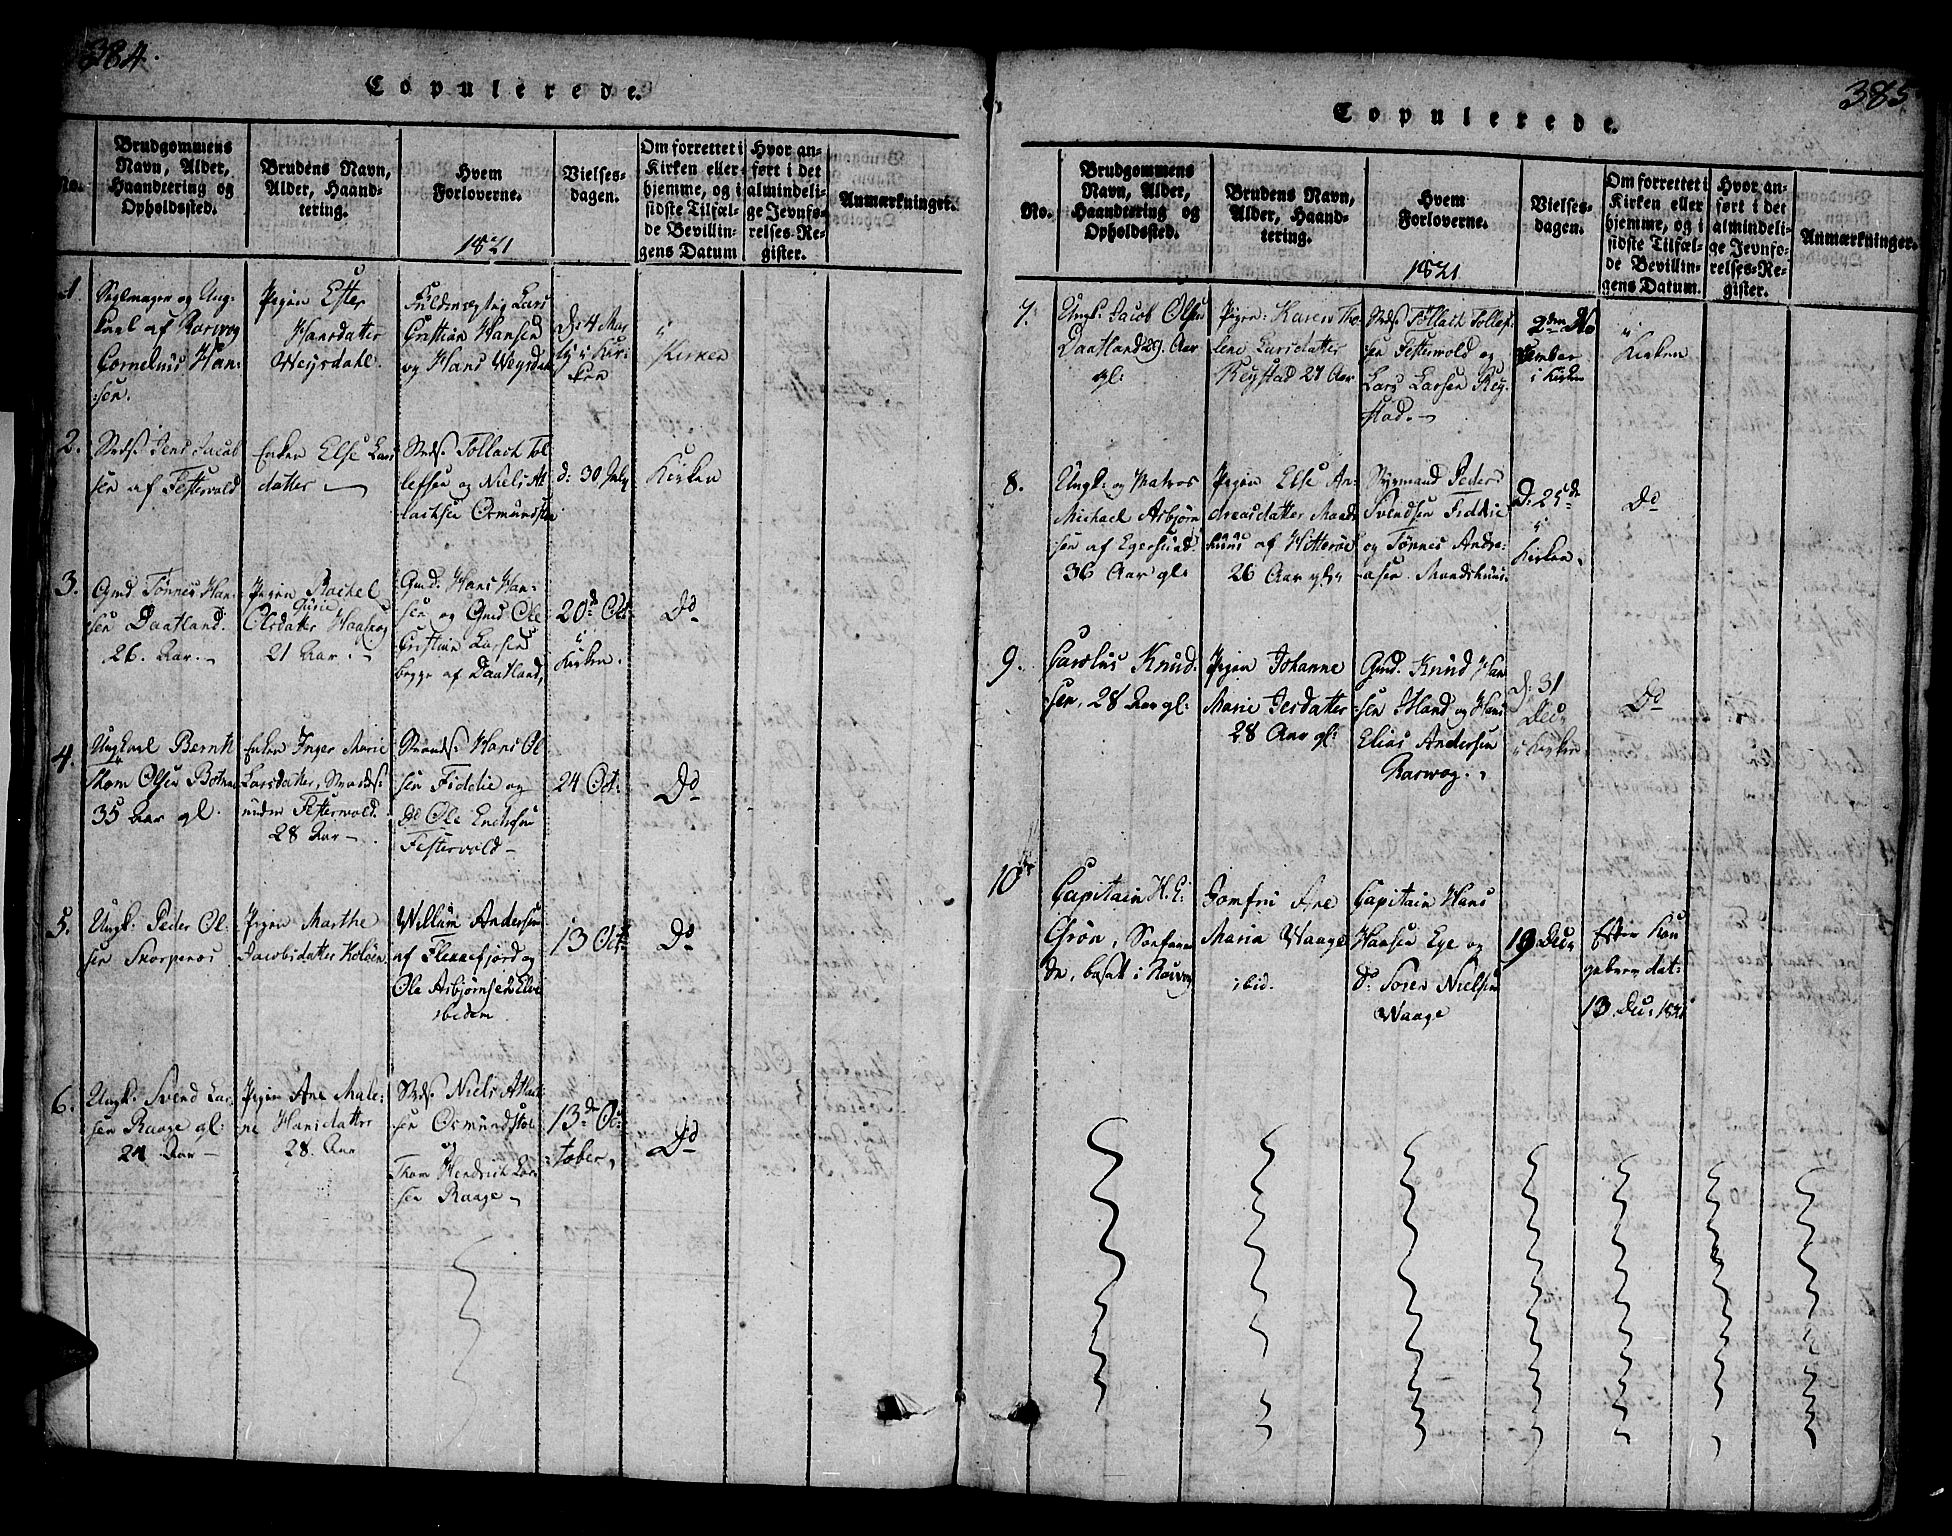 384.
Copulerede.
No.
Brudgommens
Navn, Alder,
Haandtering og
Opholdssted.
Brudens Navn,
Alder, Haand-
tering.
Hvem
Forloverne.
1821
Vielses-
dagen.
Om forrettet i
Kirken eller
hjemme, og i
sidste Tilfæl-
de Bevillin-
gens Datum
Hvor an-
ført i det
almindeli-
ge Jevnfø-
relses-Re-
gister.
Anmærkninger.
1.
Seglmager og Ung-
karl af Rasvog
Cornelius Han-
sen.
Pigen Ester
Hansdatter
Weisdahl.
Fuldmægtig Lars
Cristian Hansen
og Hans Wegsdal
D: 4 Mar
i Kir-
ken
Kirken
2.
Jens Jacob
sen af Festervold
Enken Else Lars
datter
Tollach Tol
lefsen og Niels At
lachsen Osmundsten
d: 30 July
Kirken
3.
Gmd Tønnes Han-
sen Daatland.
26. Aar.
Pigen Rachel
Olsdatter
21 Aar.
Gmd: Hans Han-
sen og Gmd Ole
Cristian Larsen
begge af Daatland,
20d Oct
i
Kirken.
Do
4.
Ungkarl Bernt
Thom Olsen Botne
35 Aar gl.
Enken Inger Marie
Larsdatter,
Festervold.
28 Aar
Hans Ol
sen Fidelie og
do Ole
Festervold
24 Oct:
Do
5.
Ungk: Peder Ol-
sen Skorpenes
Pigen Marthe
Jacobsdatter Koløen
Willum Andersen
af Flekkefjord og
Ole Asbjørnsen Elve
ibidem.
13 Oct
Do
6.
Ungk: Svend Lar
sen Raage gl:
24 Aar
Pigen Ane Male-
ne Hansdatter
28. Aar
Niels Atlak
sen Osmundstøl
og
Thom Hendrich Lar
sen Raage
13de Oc-
tober,
Do
385
Copulerede.
No.
Brudgommens
Navn, Alder,
Haandtering og
Opholdssted.
Brudens Navn,
Alder, Haand-
tering.
Hvem
Forloverne.
1821
Vielses-
dagen.
Om forrettet i
Kirken eller
hjemme, og i
sidste Tilfæl-
de Bevillin-
gens Datum.
Hvor an-
ført i det
almindeli-
ge Jevnfø-
relses-Re-
gister.
Anmærkninger.
7.
Ungk: Jacob Olsen
Daatland 29. Aar
gl:
Pigen: Karen Tho-
lene Larsdatter
Regstad 27 Aar
Tollach Tollef-
sen Festervold og
Lars Larsen Reg-
stad.
2den No
vember
i Kirken
i
Kirken
8.
Ungk: og Matros
Michael Asbjørn
sen af Egersund.
36 Aar gl:
Pigen Else An-
dreasdatter Mands
huus af Hitterøe
26 Aar gl:
Styrmand Peder
Svendsen Fidelie
og Tønnes Andre-
asen. Mandshuus
D: 25de
i
Kirken.
Do
9.
Carolus Knud-
sen, 28 Aar gl:
Pigen Johanne
Marie Jersdatter
28 Aar gl:
Gmd. Knud Han
sen og Hans
Elias Andersen
Rasvog.
D: 31
Dec
i Kirken
Do
10de
Capitain H. E:
Grøn,
Jomfru Ane
Maria Waage
ibid.
Capitain Hans
Hansen Ege og
do Soren Nielsen
Waage
19 Dec
Efter Kon
gebrev dat:
13. Dec: 1821